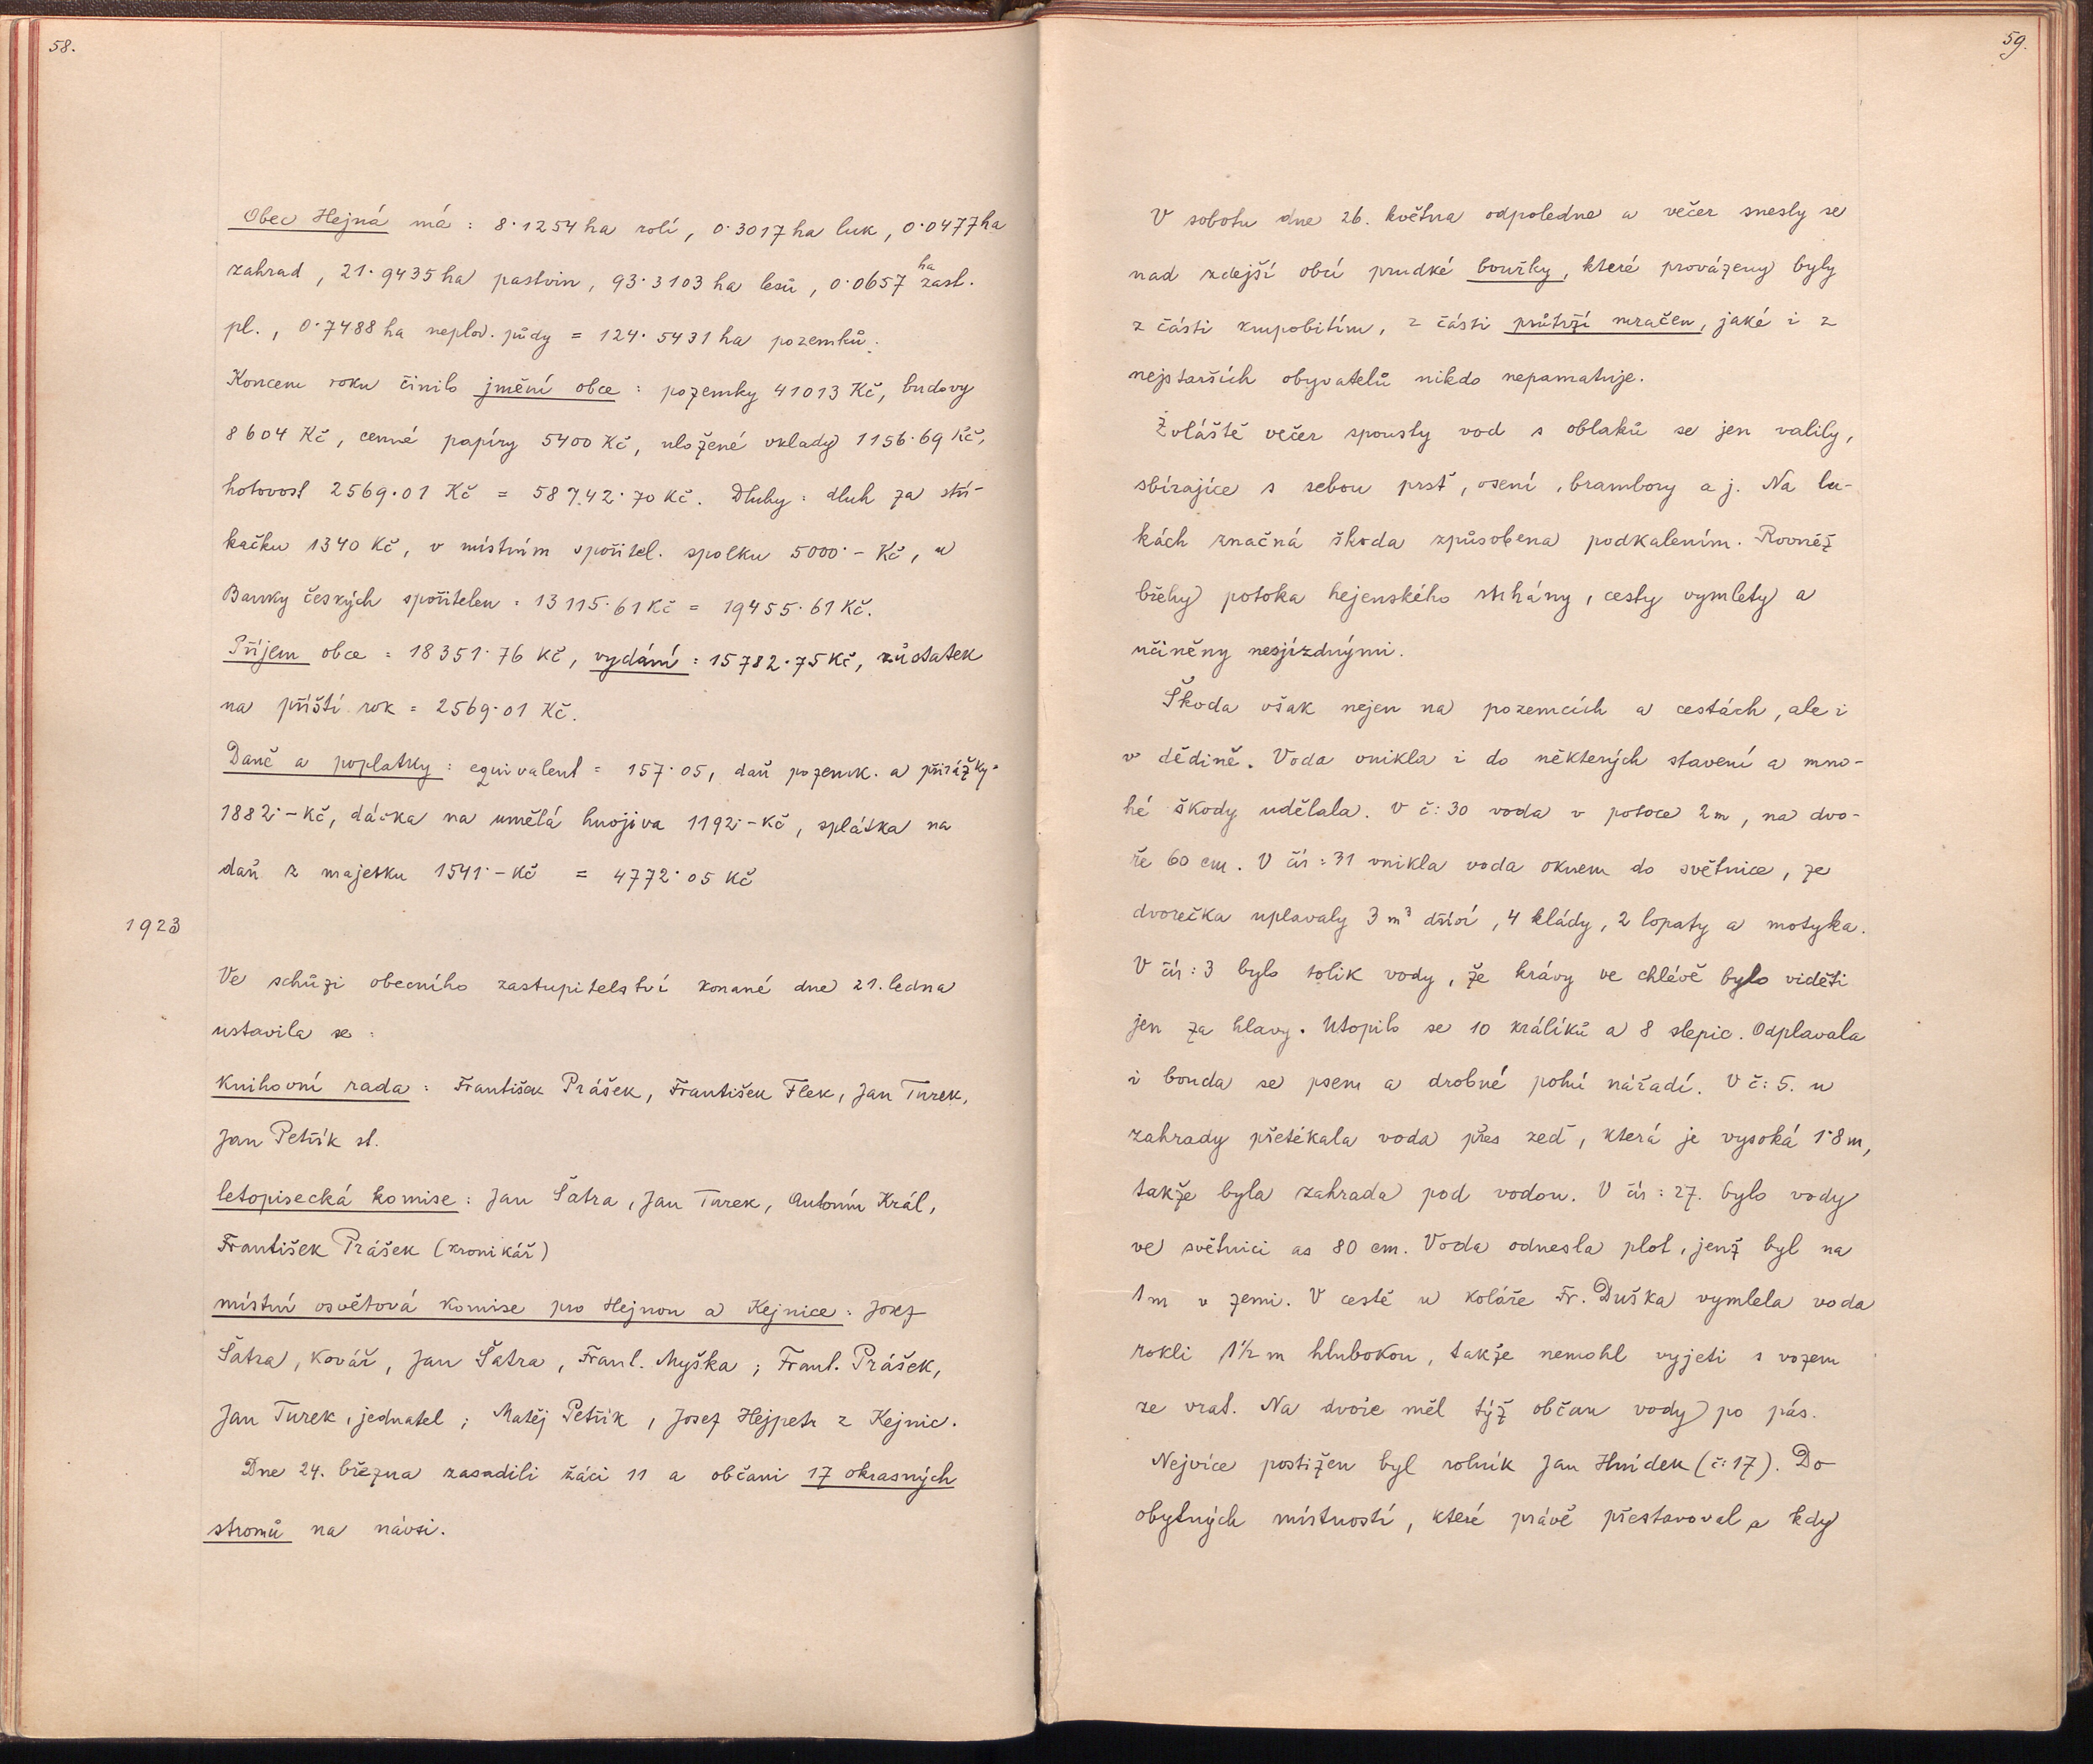 58.
Obec Hejná má : 8·1254 ha rolí, 0·3017 ha luk, 0·0477 ha
zahrad, 21·9435 ha pastvin, 93·3103 ha lesů, 0·0657 ha zast.
pl., 0·7488 ha neplod. půdy = 124·5431 ha pozemků.
Koncem roku činilo jmění obce : pozemky 41013 Kč, budovy
8604 Kč, cenné papíry 5400 Kč, uložené vklady 1156·69 Kč,
hotovost 2569·01 Kč = 58742·70 Kč. Dluhy : dluh za stří-
kačku 1340 Kč, v místním spořitel. spolku 5000·- Kč, u
Banky českých spořitelen : 13115·61 Kč = 19455·61 Kč.
Příjem obce = 18351·76 Kč, vydání = 15782·75 Kč, zůstatek
na příští rok = 2569·01 Kč.
Daně a poplatky : equivalent = 157·05, daň pozemk. a přirážky =
1882·- Kč, dávka na umělá hnojiva 1192·- Kč, splátka na
daň z majetku 1541·- Kč = 4772·05 Kč
1923
Ve schůzi obecního zastupitelství konané dne 21. ledna
ustavila se :
Knihovní rada : František Prášek, František Flek, Jan Turek,
Jan Petřík st.
letopisecká komise : Jan Šatra, Jan Turek, Antonín Král,
František Prášek (kronikář)
místní osvětová komise pro Hejnou a Kejnice : Josef
Šatra, kovář, Jan Šatra, Frant. Myška, Frant. Prášek,
Jan Turek, jednatel, Matěj Petřík, Josef Hejpetr z Kejnic.
Dne 24. března zasadili žáci 11 a občani 17 okrasných
stromů na návsi.
59.
V sobotu dne 26. května odpoledne a večer snesly se
nad zdejší obcí prudké bouřky, které provázeny byly
z části krupobitím, z části průtrží mračen, jaké i z
nejstarších obyvatelů nikdo nepamatuje.
Zvláště večer spousty vod s oblaků se jen valily,
sbírajíce s sebou prsť, osení, brambory a j. Na lu-
kách značná škoda způsobena podkalením. Rovněž
břehy potoka hejenského strhány, cesty vymlety a
učiněny nesjízdnými.
Škoda však nejen na pozemcích a cestách, ale i
v dědině. Voda vnikla i do některých stavení a mno-
hé škody udělala. V č: 30 voda v potoce 2 m, na dvo-
ře 60 cm. V čís: 31 vnikla voda oknem do světnice, ze
dvorečka uplavaly 3 m³ dříví, 4 klády, 2 lopaty a motyka.
V čís: 3 bylo tolik vody, že krávy ve chlévě bylo viděti
jen za hlavy. Utopilo se 10 králíků a 8 slepic. Odplavala
i bouda se psem a drobné polní nářadí. V č: 5. u
zahrady přetékala voda přes zeď, která je vysoká 1·8 m,
takže byla zahrada pod vodou. V čís: 27. bylo vody
ve světnici as 80 cm. Voda odnesla plot, jenž byl na
1 m v zemi. V cestě u koláře Fr. Duška vymlela voda
rokli 1½ m hlubokou, takže nemohl vyjeti s vozem
ze vrat. Na dvoře měl týž občan vody po pás.
Nejvíce postižen byl rolník Jan Hnídek (č: 17). Do
obytných místností, které právě přestavoval a kdy